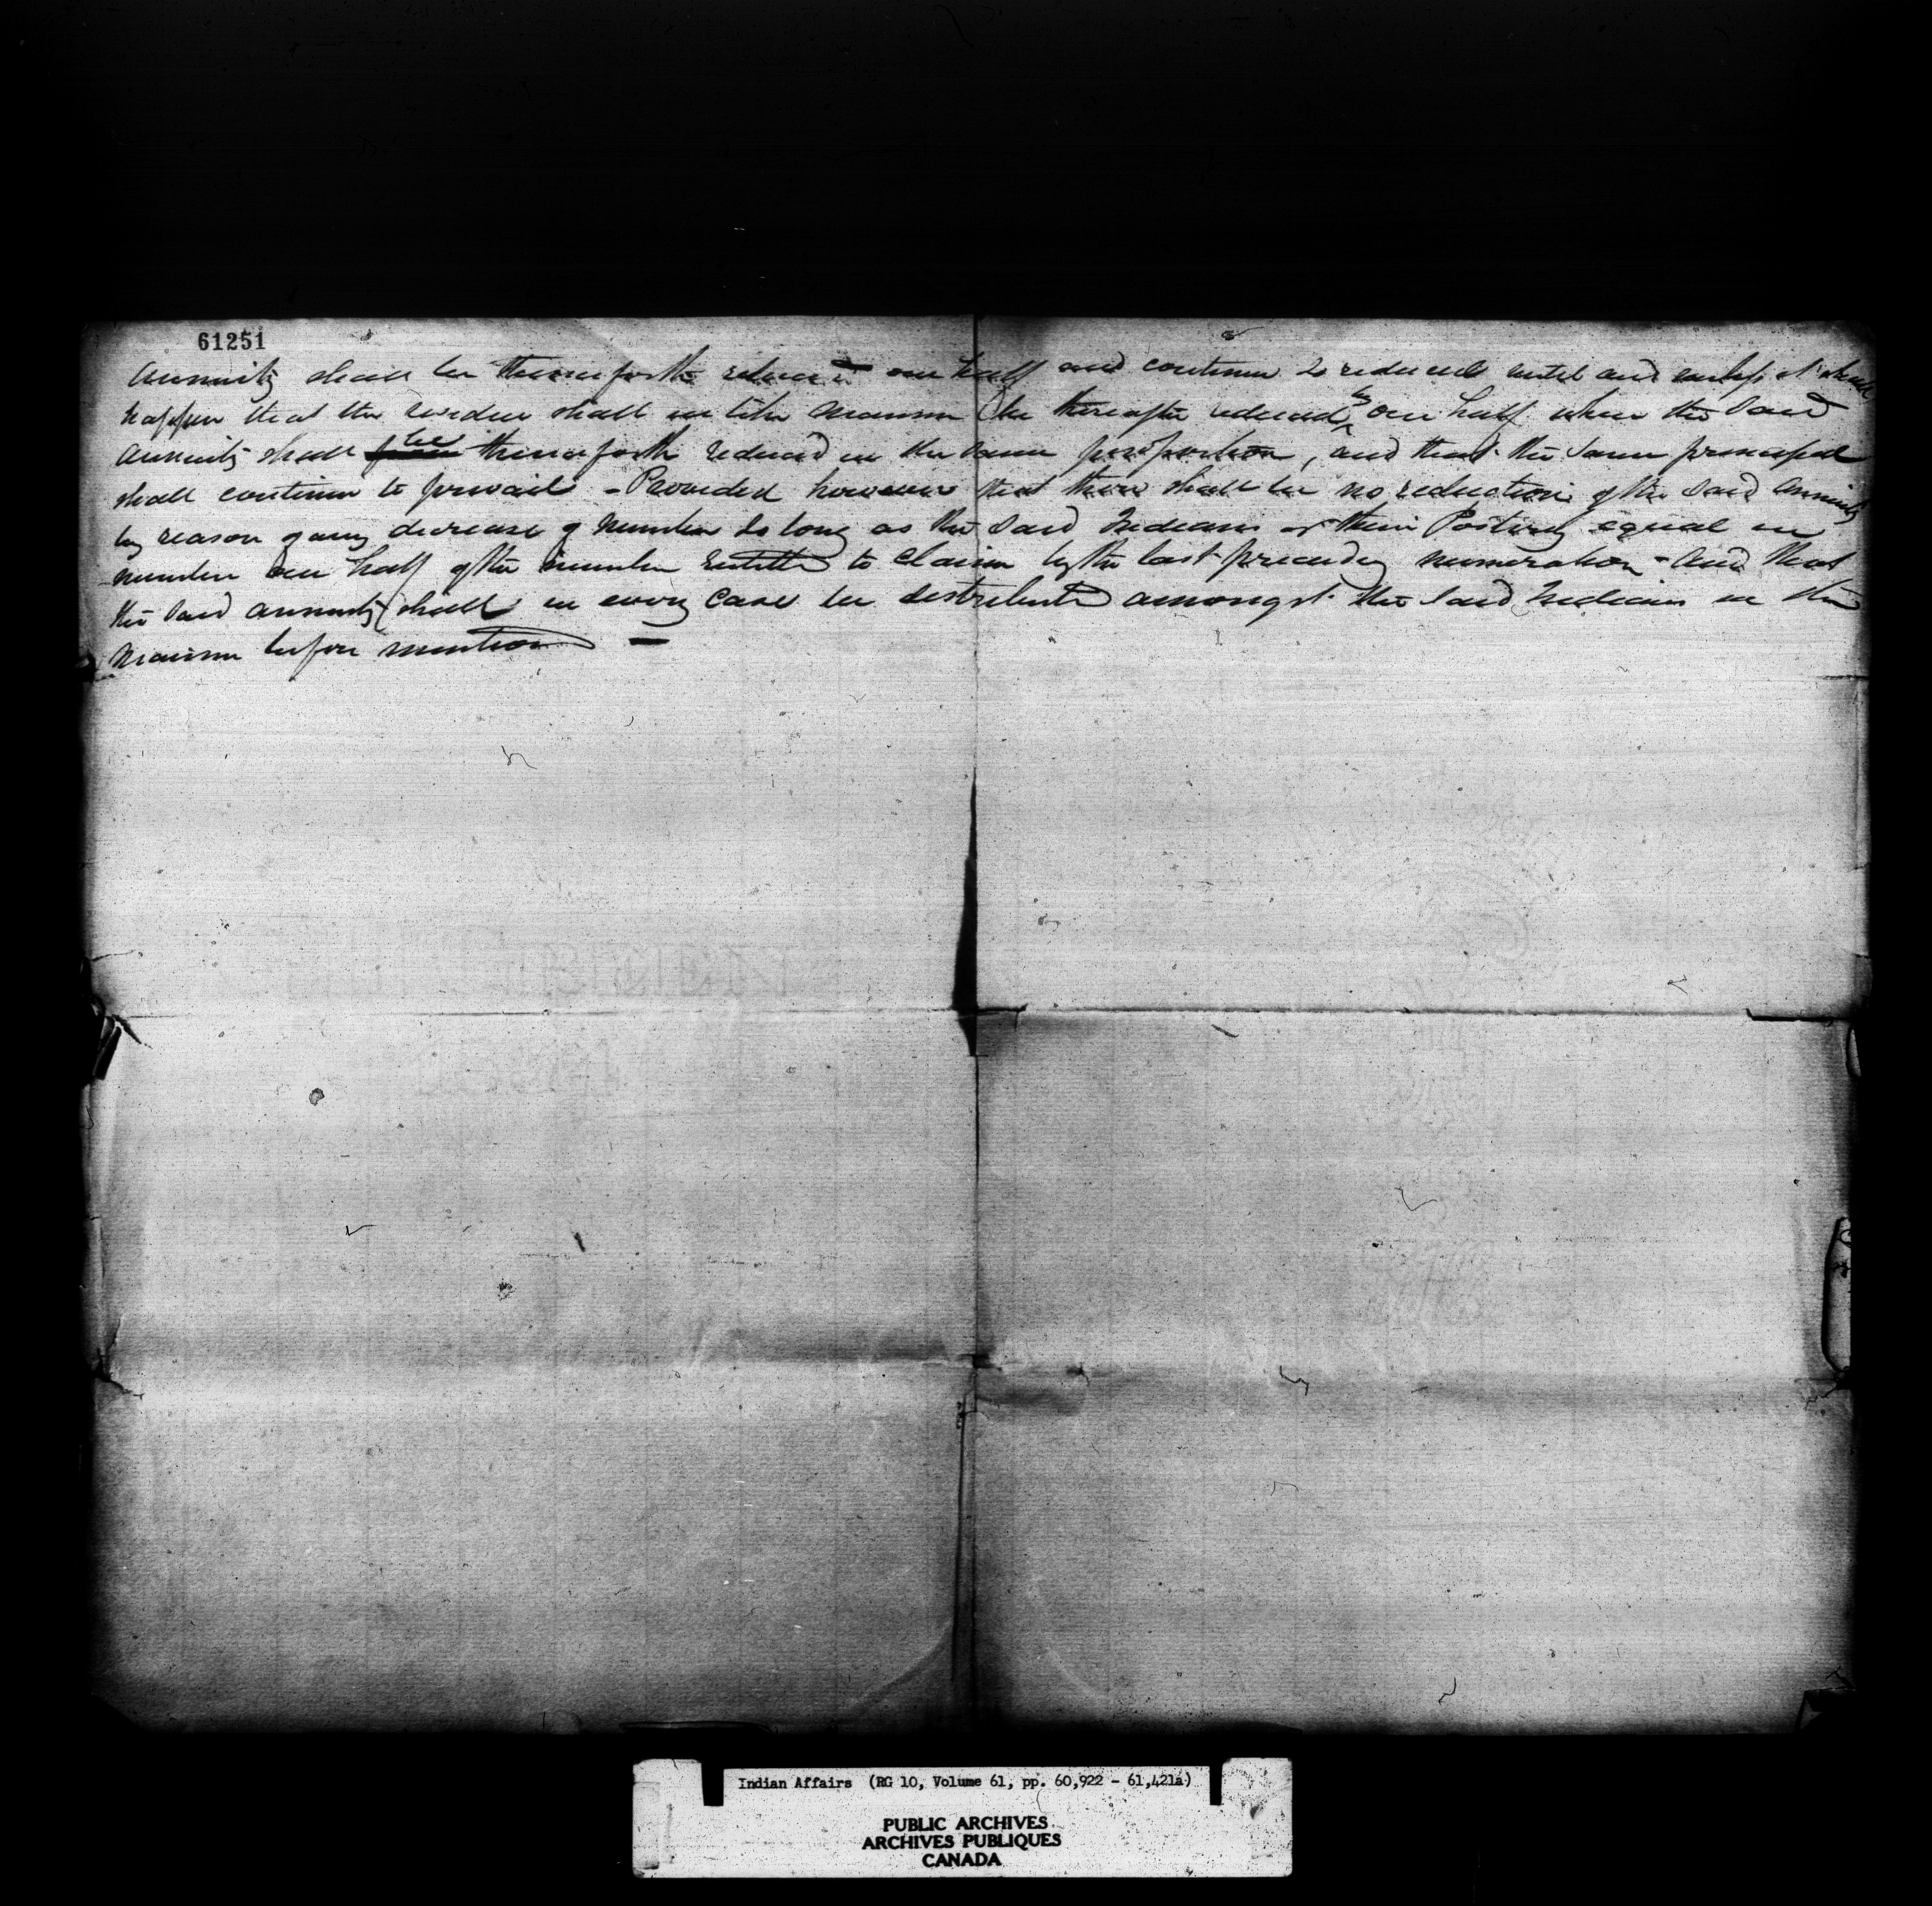 61251
annuity shall be thenceforth reduced one half and continue so reduced until and unless it shall
happen that the residue shall in like manner be thereafter reduced to one half when the said
annuity shall be thenceforth reduced in the same proportion, and that the same principal
shall continue to prevail - Provided however that there shall be no reduction of the said annuity
by reason of any decrease of number so long as the said Indians or their Posterity equal in
number one half of the number entitled to claim by the last preceding numeration - and that
the said annuity shall in every case be distributed amongst the said Indians in the
manner before mentioned —
Indian Affairs (RG 10, Volume 61, pp. 60,922 - 61,421a)
PUBLIC ARCHIVES
ARCHIVES PUBLIQUES
CANADA